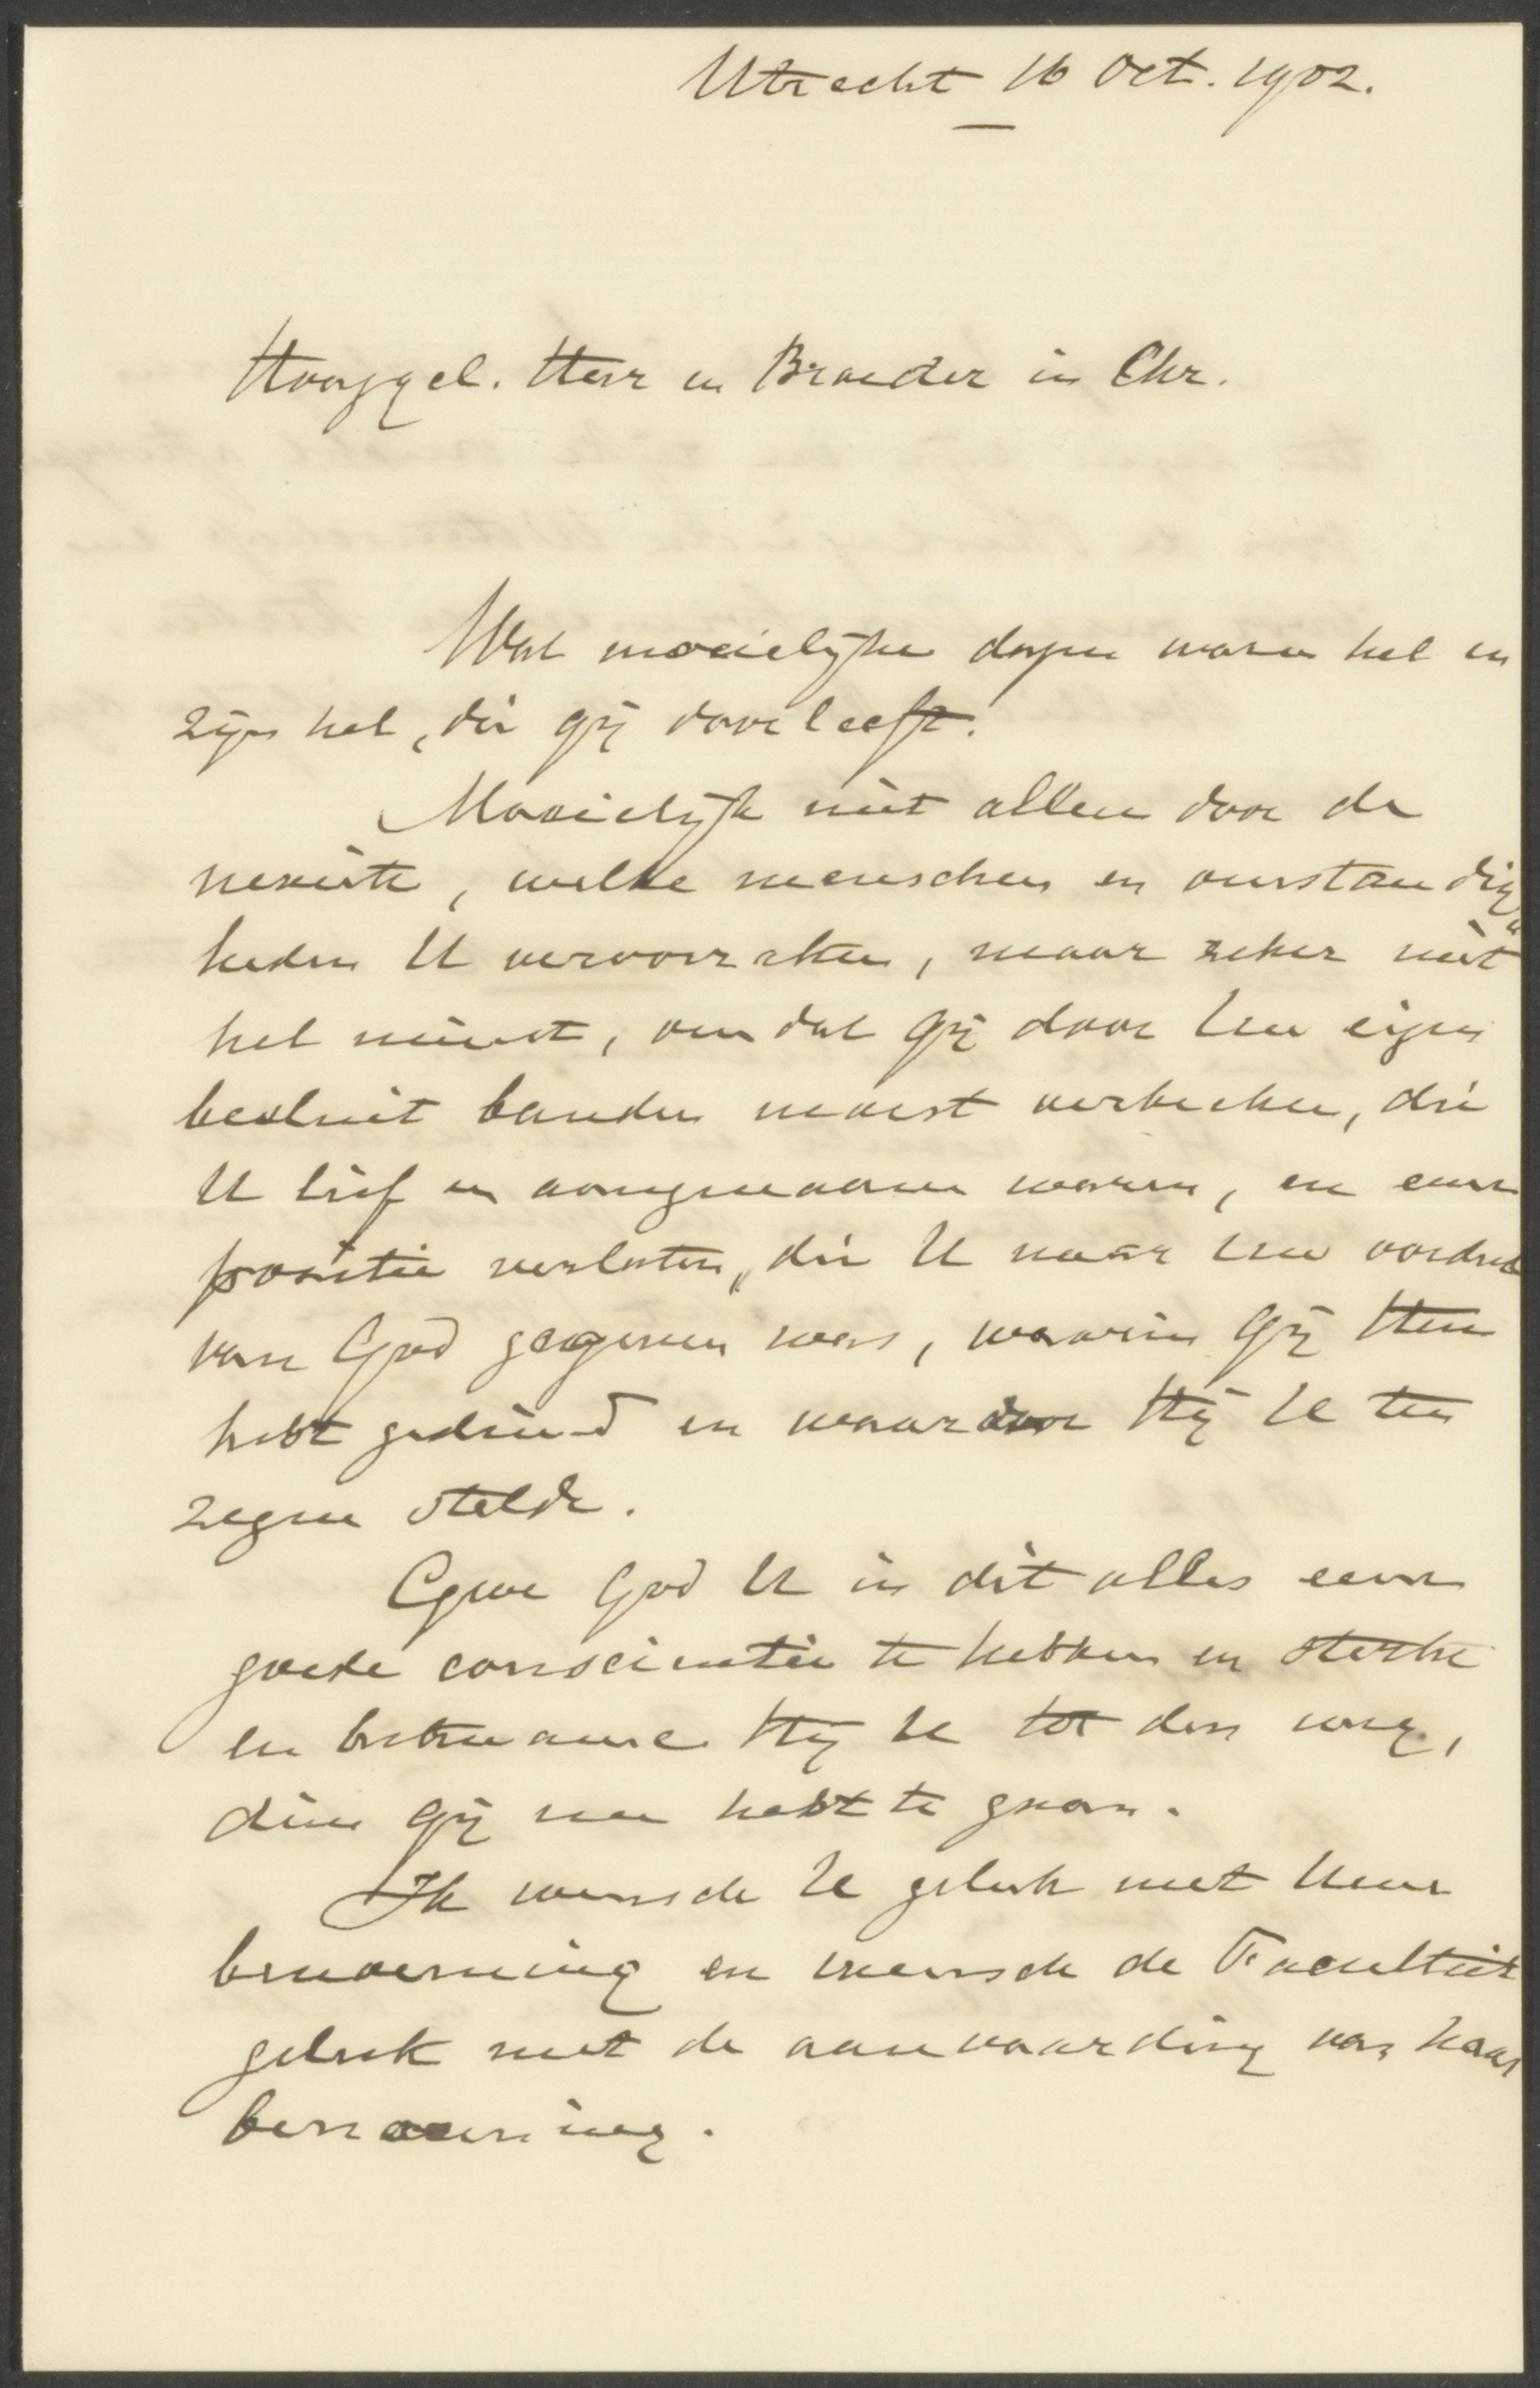 Utrecht 16 Oct. 1902.
Hooggel. Heer en Broeder in Chr.
Wat moeielijke dagen waren het en
zijn het, die gij doorleeft.
Moeielijk niet alleen door de
moeite, welke menschen en omstandig„
heden U veroorzaken, maar zeker niet
het minst, omdat gij door Uw eigen
besluit banden moest verbreken, die
U lief en aangenaam waren, en eene
positie verlaten, die U naar Uw oordeel
van God gegeven was, waarin gij Hem
hebt gediend en waardoor Hij U ten
zegen stelde.
Geve God U in dit alles eene
goede conscientie te hebben en sterke
en bekwame Hij U tot den weg,
dien gij nu hebt te gaan.
Ik wensch U geluk met Uwe
benoeming en wensch de Faculteit
geluk met de aanvaarding van haar
benoeming.